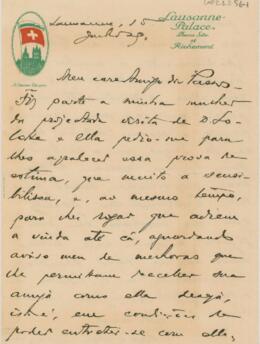 Lausanne, 15
Junho 29.
Lausanne-
Palace
Beau Site
et
Richemont
Meu caro Amigo Dr.
Fiz parte a minha mulher
da projectada visita de D.
e ella pedio-me para
lhes agradecer essa prova de
estima, que muito a sensi-
bilisou, e, ao mesmo tempo,
para lhes rogar que adiem
a vinda até cá, aguardando
aviso meu de melhoras que
lhe permittam receber sua
amiga como ella deseja,
isto é, em condições de
poder entreter-se com ella,